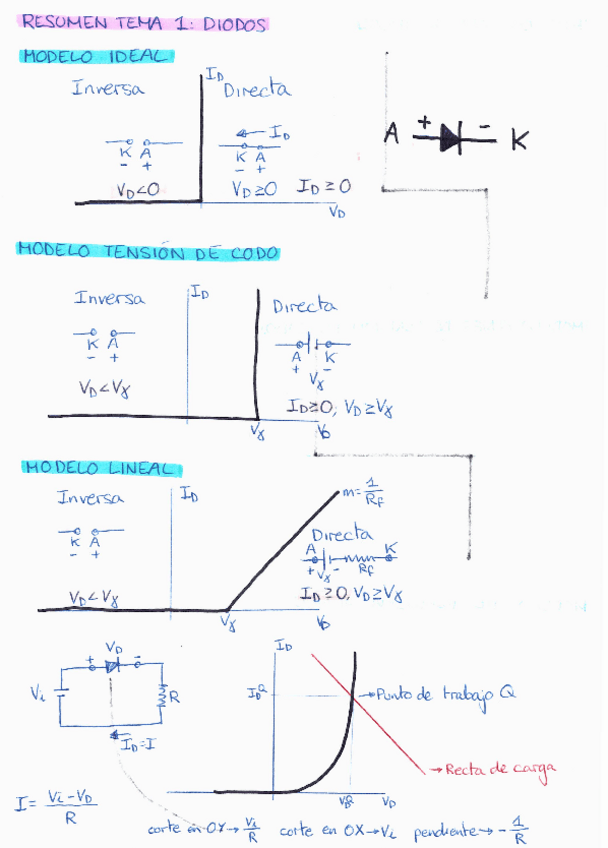 RESUMEN TEMA 1: DIODOS
MODELO IDEAL
I_D
Inversa
Directa
← I_D
K A
- +
K A
- +
A + - K
V_D<0
V_D≥0 I_D≥0
V_D
MODELO TENSIÓN DE CODO
Inversa
I_D
Directa
K A
- +
A K
+ -
Vγ
V_D<Vγ
I_D≥0, V_D≥Vγ
Vγ
V_D
MODELO LINEAL
Inversa
I_D
m=1/R_f
Directa
K A
- +
A K
+ Vγ - R_f
V_D<Vγ
I_D≥0, V_D≥Vγ
Vγ
V_D
V_D
+ -
V_i
R
I_D=I
I_D
I_D^Q
→Punto de trabajo Q
→Recta de carga
V_D
I = (V_i-V_D)/R
corte en OY→V_i/R corte en OX→V_i pendiente→ -1/R